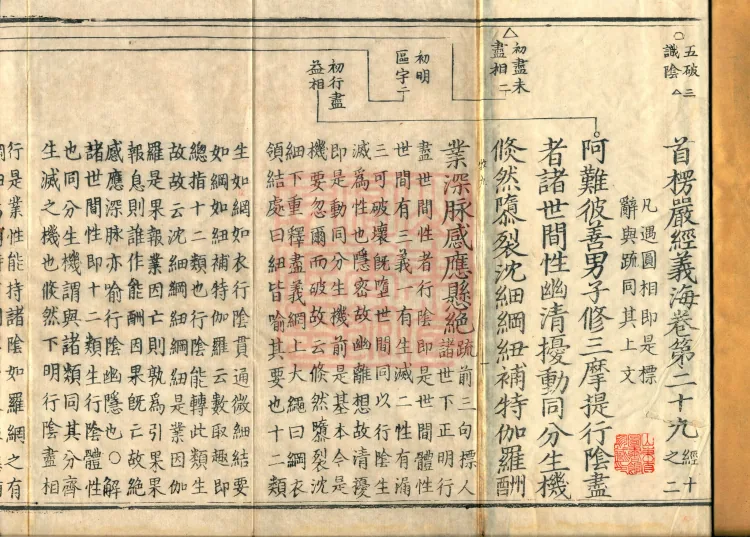 首楞嚴經義海卷第二十九 經十之二
五破三
識陰
凡遇圓相即是標
辭與疏同其上文
阿難彼善男子修三摩提行陰盡
者諸世間性幽清擾動同分生機
初盡未
盡相二
倏然隳裂沈細綱紐補特伽羅酬
業深脉感應懸絕疏前三句標人
諸世下正明行
初明
區宇二
初行盡
益相
盡世間性者行陰即是世間體性
世間有三義一有生滅二性有漏
三可破壞旣墮世間同以行陰生
滅爲性也隱密故幽離想故清擾
即是動同分生機前是基本今是
機要忽爾而破故云倏然隳裂沈
細下重釋盡義綱上大繩曰綱衣
領結處曰紐皆喻其要也十二類
生如網如衣行陰貫通微細結要
如綱如紐補特伽羅云數取趣即
總指十二類也行陰能轉此類生
故故云沈細綱紐綱紐是業因伽
羅是果報業因亡則孰爲引果果
報息則誰作能酬因果旣亡故絕
感應深脉亦喻行陰幽隱也○解
諸世間性即十二類生行陰體性
也同分生機謂與諸類同其分齊
生滅之機也倏然下明行陰盡相
行是業性能持諸陰如羅網之有